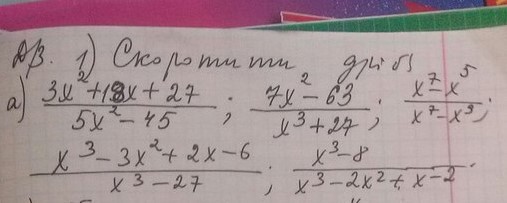 Дз. 1) Скоротити дріб
а) (3x²+18x+27)/(5x²-45); (7x²-63)/(x³+27); (x⁷-x⁵)/(x⁷-x³);
(x³-3x²+2x-6)/(x³-27); (x³-8)/(x³-2x²+x-2).